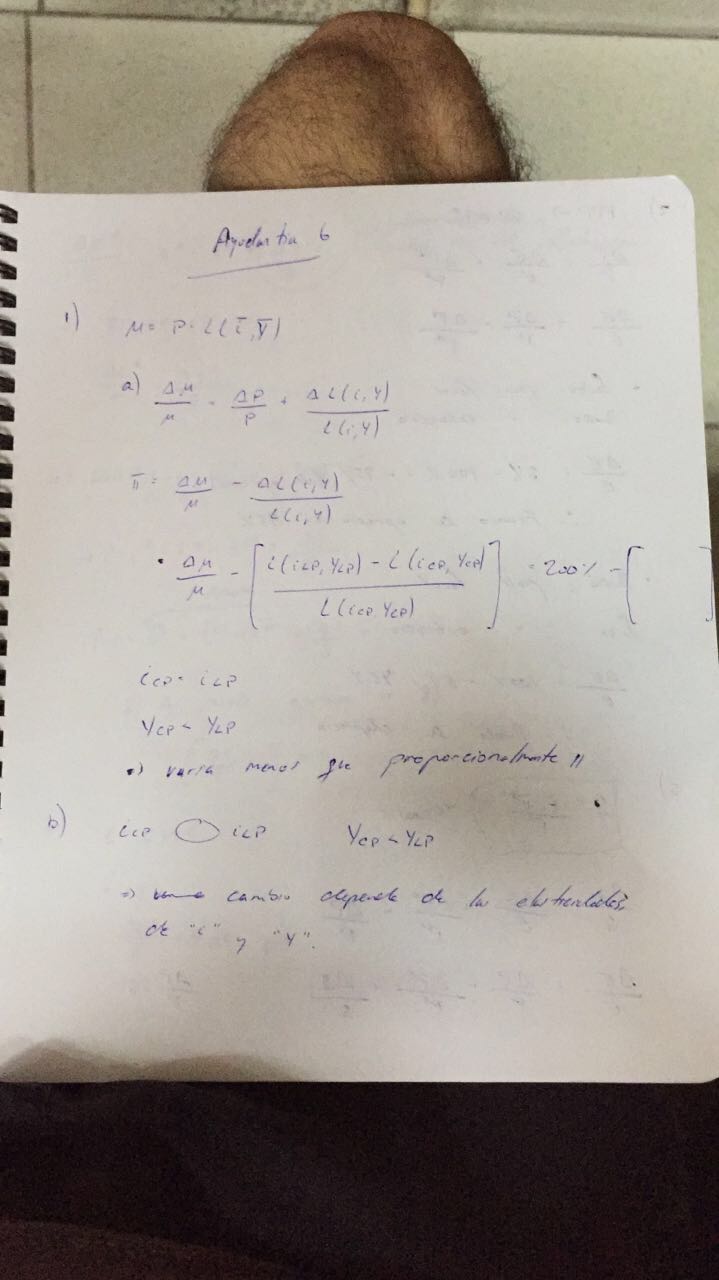 Ayudantía 6
1) M = P · L(i, Y)
a) ΔM/M = ΔP/P + ΔL(i,Y)/L(i,Y)
π = ΔM/M - ΔL(i,Y)/L(i,Y)
· ΔM/M - [ L(iLP, YLP) - L(iCP, YCP) / L(iCP YCP) ] = 200% - [ ]
iCP = iLP
YCP < YLP
=) varia menos que proporcionalmente //
b) iCP ◯ iLP YCP < YLP
=) cambio depende de las elasticidades
de "i" y "Y".